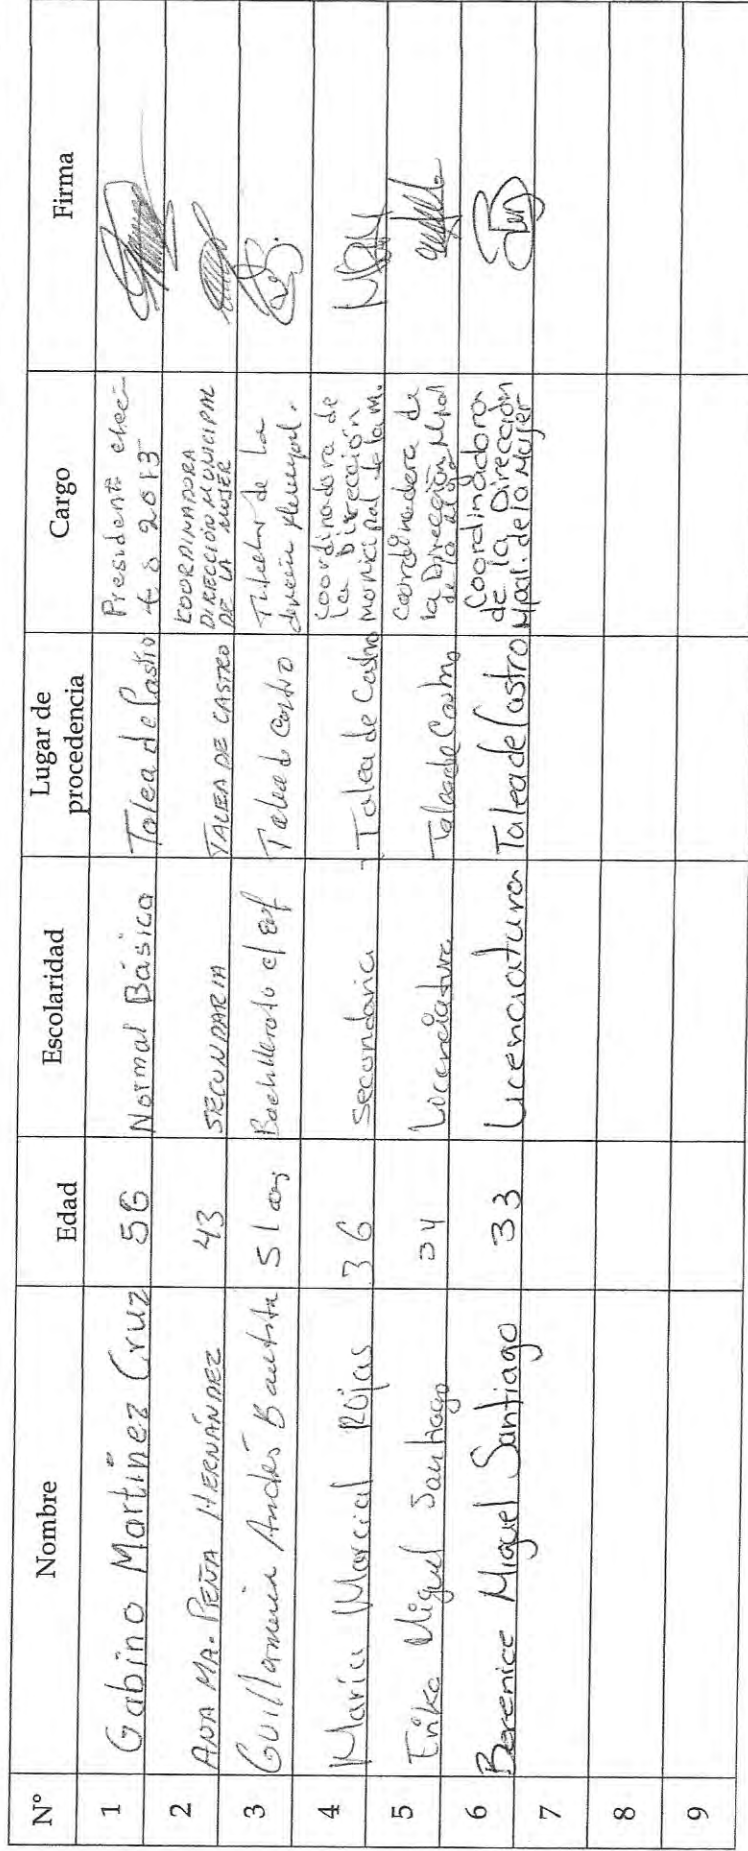 N° Nombre Edad Escolaridad Lugar de procedencia Cargo Firma
1 Gabino Martinez Cruz 56 Normal Básica Talea de Castro Presidente elec-
to 2013
2 ANA MA. PEÑA HERNÁNDEZ 43 SECUNDARIA TALEA DE CASTRO COORDINADORA
DIRECCIÓN MUNICIPAL
DE LA MUJER
3 Guillermina Andrés Bautista 51 Bachillerato Talea de Castro Titular de la
4 Maria Marcial Rojas 36 Secundaria Talea de Castro Coordinadora de
la Dirección
municipal de la m.
5 Erika Miguel Santiago 34 Licenciatura Talea de Castro Coordinadora de
la Dirección Mpal
de la
6 Berenice Miguel Santiago 33 Licenciatura Talea de Castro Coordinadora
de la Dirección
Mpal. de la Mujer
7
8
9